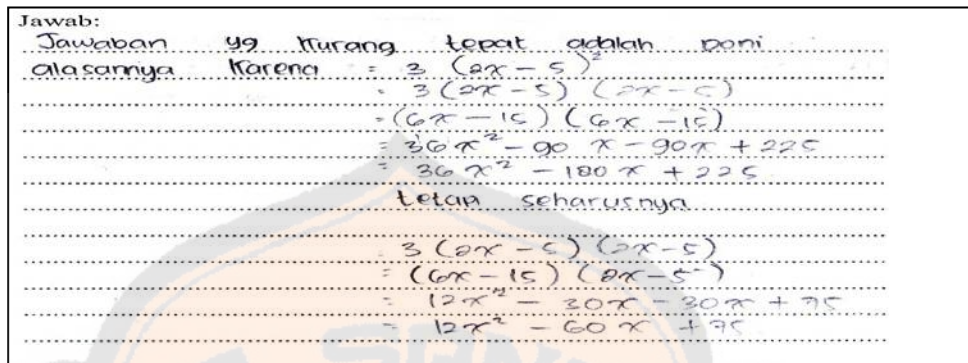 Jawab:
Jawaban yg kurang tepat adalah Doni
alasannya karena = 3 (2x - 5)²
= 3 (2x - 5) (2x - 5)
= (6x - 15) (6x - 15)
= 36x² - 90x - 90x + 225
= 36x² - 180x + 225
tetapi seharusnya
= 3 (2x - 5) (2x - 5)
= (6x - 15) (2x - 5)
= 12x² - 30x - 30x + 75
= 12x² - 60x + 75